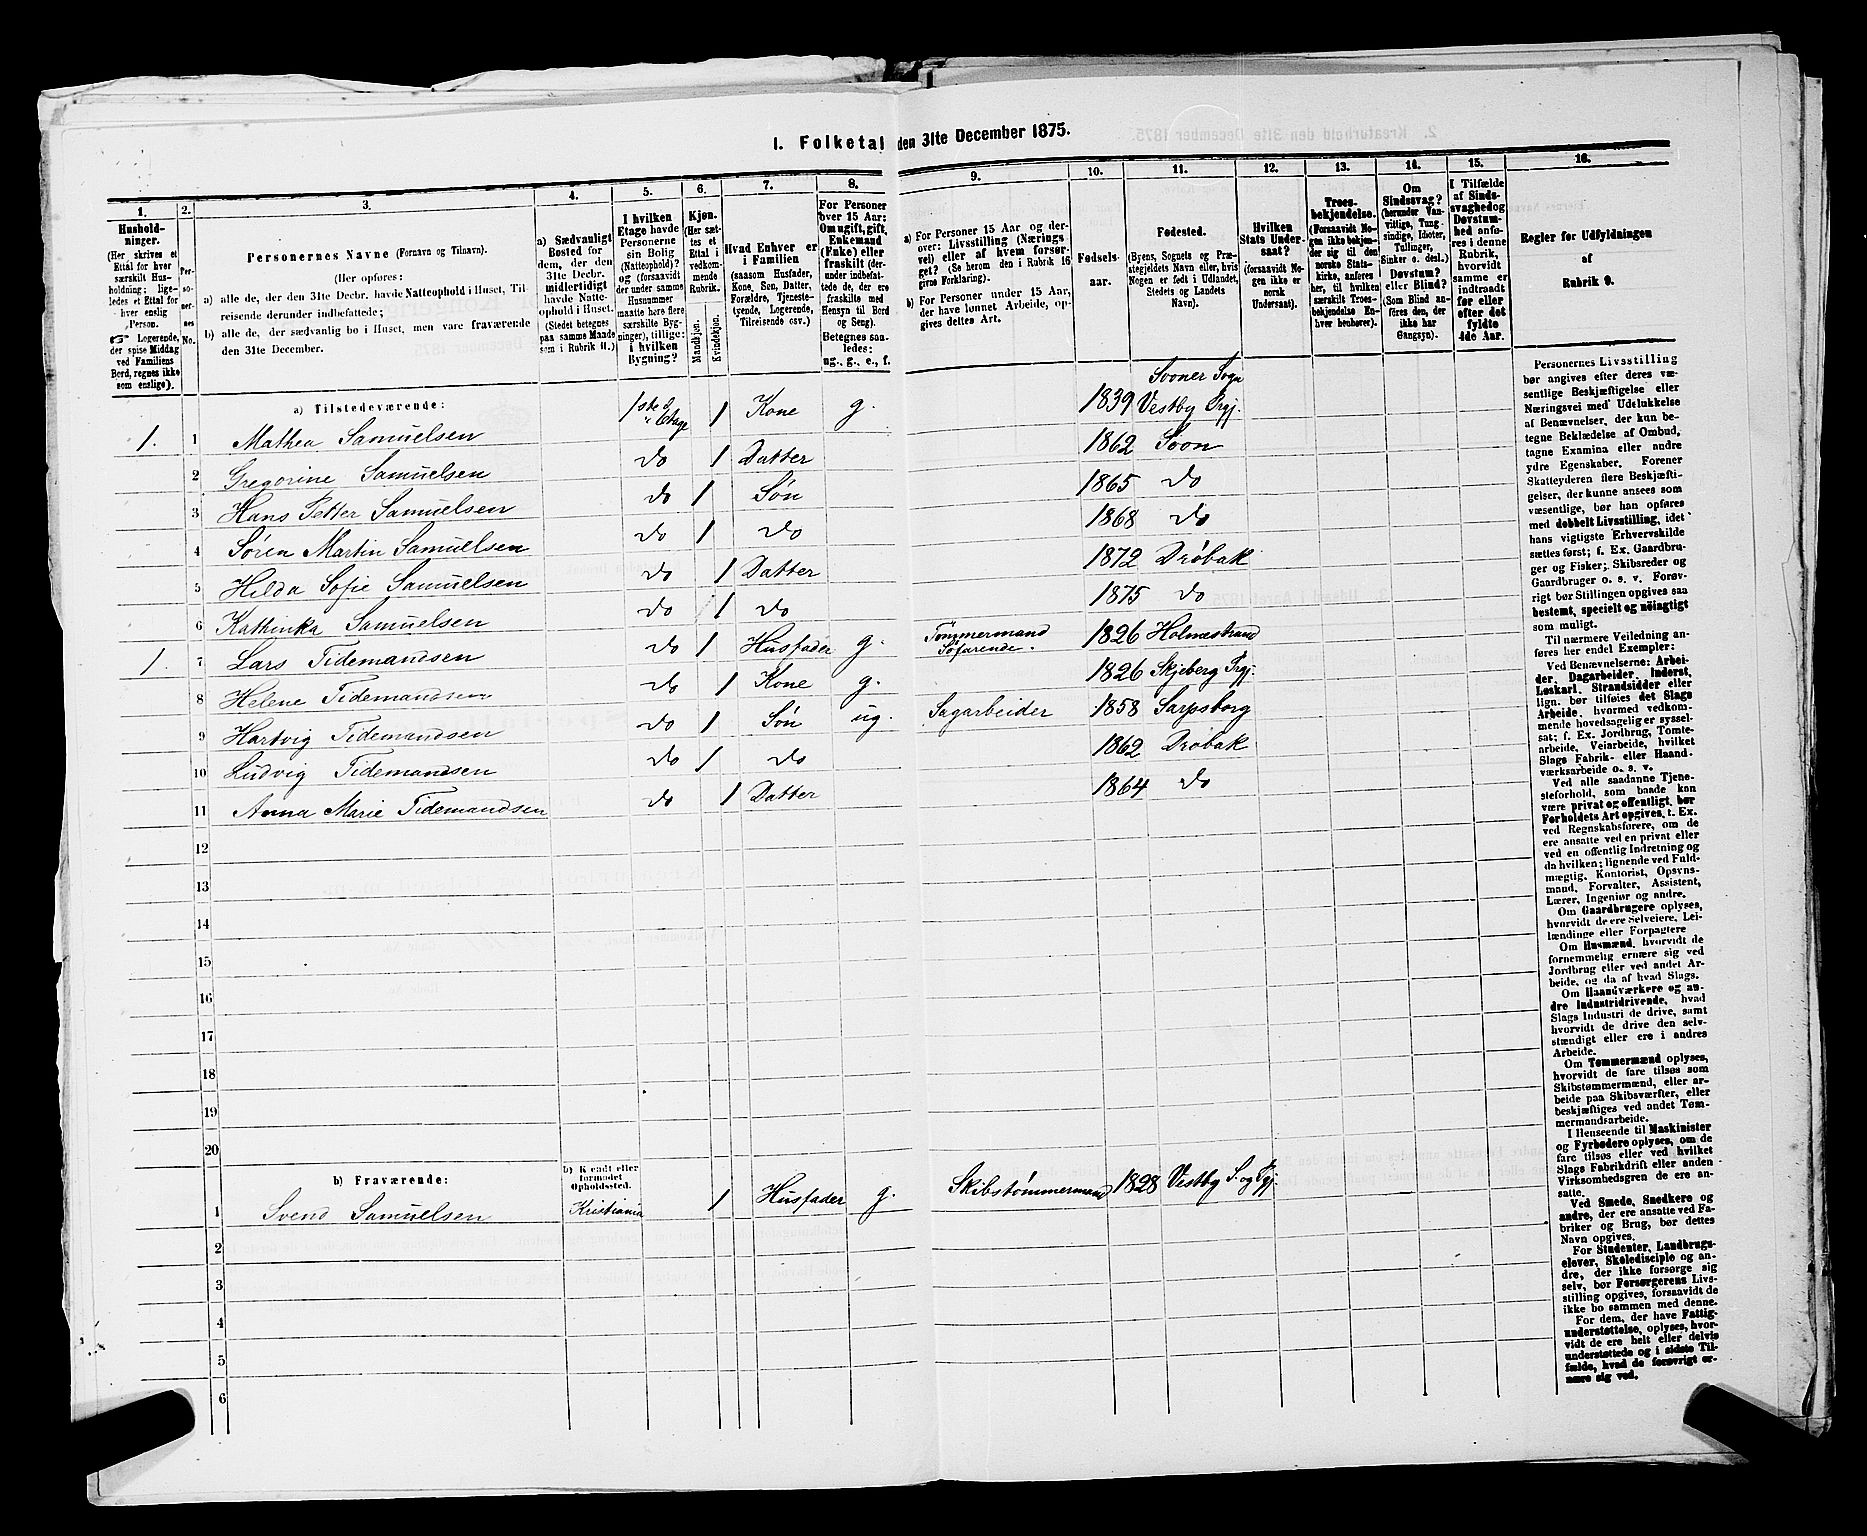 I. Folketal den 31te December 1875.
1.
Husholdninger.
(Her skrives et
Ettal for hver
særskilt Husholdning; ligeledes
et Ettal for
hver enslig
Person.
Logerende,
der spise Middag
ved Familiens
Bord, regnes ikke
som enslige).
2.
Personernes
No.
3.
Personernes Navne (Fornavn og Tilnavn).
(Her opføres:
a) alle de, der den 31te Decbr. havde Natteophold i Huset, Tilreisende derunder indbefattede;
b) alle de, der sædvanlig bo i Huset, men vare fraværende
den 31te December.
4.
a) Sædvanligt
Bosted for
dem, der den
31te Decbr.
midlertidigt
havde Natteophold i Huset.
(Stedet betegnes
paa samme Maade
som i Rubrik 11.)
5.
I hvilken
Etage havde
Personerne
sin Bolig
(Natteophold)?
og (forsaavidt
der under samme
Husnummer
maatte høre flere
særskilte Bygninger), tillige:
i hvilken
Bygning?
6.
Kjøn.
(Her sættes et
Ettal i
vedkommende
Rubrik.
Mandkjøn.
Kvindekjøn.
7.
Hvad Enhver er
i Familien
(saasom Husfader,
Kone, Søn, Datter,
Forældre, Tjenestetyende, Logerende,
Tilreisende osv.)
8.
For Personer
over 15 Aar:
Om ugift, gift,
Enkemand
(Enke) eller
fraskilt (derunder indbefattede de, der ere
fraskilte med
Hensyn til Bord
og Seng).
Betegnes saaledes:
ug., g., e., f.
9.
a) For Personer 15 Aar og derover: Livsstilling (Næringsvei) eller af kvem forsørget? (Se herom den i Rubrik 16
givne Forklaring).
b) For Personer under 15 Aar,
der have lønnet Arbeide, opgives dettes Art.
10.
Fødselsaar.
11.
Fødested.
(Byens, Sognets og Præstegjeldets Navn eller, hvis
Nogen er født i Udlandet,
Stedets og Landets
Navn).
12.
Hvilken
Stats Undersaat?
(forsaavidt Nogen ikke er
norsk
Undersaat).
13.
Troesbekjendelse.
(Forsaavidt Nogen ikke bekjender sig til den
norske Statskirke, anføres
her, til hvilken
særskilt Troesbekjendelse Enhver henhører).
14.
Om
Sindssvag?
(herunder Vanvittige, Tungsindige, Idioter,
Tullinger,
Sinker o. desl.)
Døvstum?
eller Blind?
(Som Blind anføres den, der
ikke har
Gangsyn).
15.
I Tilfælde
af Sindssvaghed og
Døvstumhed anføres i denne
Rubrik,
hvorvidt
samme er
indtraadt
før eller
efter det
fyldte
4de Aar.
16.
Regler for Udfyldningen
af
Rubrik 9.
a) Tilstedeværende:
1. 1 Mathea Samuelsen 1ste Etage 1 Kone g. 1839 Sooner Sogn Vestby Prgj.
2 Gregorine Samuelsen do 1 Datter 1862 Soon
3 Hans Petter Samuelsen do 1 Søn 1865 do
4 Søren Martin Samuelsen do 1 do 1868 do
5 Hilda Sofie Samuelsen do 1 Datter 1872 Drøbak
6 Kathinka Samuelsen do 1 do 1875 do
1. 7 Lars Tidemandsen do 1 Husfader g. Tømmermand Søfarende. 1826 Holmestrand
8 Helene Tidemandsen do 1 Kone g. 1826 Skjeberg Prgj.
9 Hartvig Tidemandsen do 1 Søn ug. Sagarbeider 1858 Sarpsborg
10 Ludvig Tidemandsen do 1 do 1862 Drøbak
11 Anna Marie Tidemandsen do 1 Datter 1864 do
12
13
14
15
16
17
18
19
20
b) Fraværende:
b) Kendt eller
formodet
Opholdssted.
1 Svend Samuelsen Kristiania 1 Husfader g. Skibstømmermand 1828 Vestby S. og Pgj.
2
3
4
5
6
Personernes Livsstilling
bør angives efter deres væsentlige Beskjæftigelse eller
Næringsvei med Udelukkelse
af Benævnelser, der kun betegne Beklædelse af Ombud,
tagne Examina eller andre
ydre Egenskaber. Forener
Skatteyderen flere Beskjæftigelser, der kunne ansees som
væsentlige, bør han opføres
med dobbelt Livsstilling, idet
hans vigtigste Erhvervskilde
sættes først; f. Ex. Gaardbruger og Fisker; Skibsreder og
Gaardbruger o. s. v. Forøvrigt bør Stillingen opgives saa
bestemt, specielt og nöiagtigt
som muligt.
Til nærmere Veiledning anføres her endel Exempler:
Ved Benævnelserne: Arbeider, Dagarbeider, Inderst,
Løskarl, Strandsidder eller
lign. bør tilføies det Slags
Arbeide, hvormed vedkommende hovedsagelig er sysselsat; f. Ex. Jordbrug, Tomtearbeide, Veiarbeide, hvilket
Slags Fabrik- eller Haandværksarbeide o. s. v.
Ved alle saadanne Tjenesteforhold, som baade kan
være privat og offentligt, bør
Forholdets Art opgives, t. Ex.
ved Regnskabsførere, om de
ere ansatte ved en privat eller
ved en offentlig Indretning og
da hvilken; lignende ved Fuldmægtig, Kontorist, Opsynsmand, Forvalter, Assistent,
Lærer, Ingeniør og andre.
Om Gaardbrugere oplyses,
hvorvidt de ere Selveiere, Leilændinge eller Forpagtere
Om Husmænd, hvorvidt de
fornemmelig ernære sig ved
Jordbrug eller ved andet Arbeide, og da af hvad Slags.
Om Haandværkere og andre Industridrivende, hvad
Slags Industri de drive, samt
hvorvidt de drive den selvstændigt eller ere i andres
Arbeide.
Om Tømmermænd oplyses,
hvorvidt de fare tilsøs som
Skibstømmermænd, eller arbeide paa Skibsværfter, eller
beskjæftiges ved andet Tømmermandsarbeide.
I Henseende til Maskinister
og Fyrbødere oplyses, om de
fare tilsøs eller ved hvilket
Slags Fabrikdrift eller anden
Virksomhedsgren de ere ansatte.
Ved Smede, Snedkere og
andre, der ere ansatte ved Fabriker og Brug, bør dettes
Navn opgives.
For Studenter, Landbrugselever, Skoledisciple og andre, der ikke forsørge sig
selv, bør Forsørgerens Livsstilling opgives, forsaavidt de
ikke bo sammen med denne.
For dem, der have Fattigunderstøttelse, oplyses, hvorvidt de ere helt eller delvis
understøttede og i sidste Tilfælde, hvad de forøvrigt ernære sig ved.